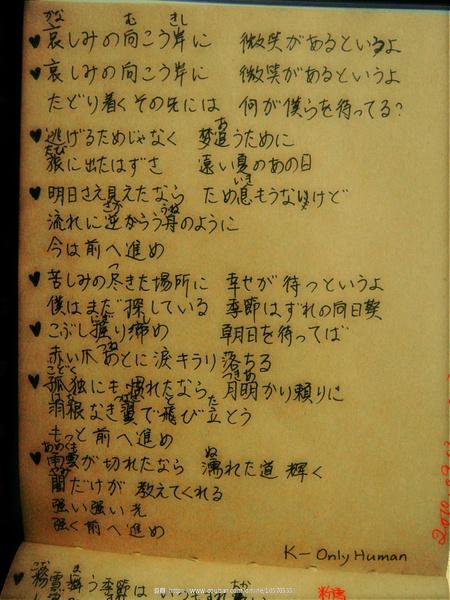 かな む きし
♥哀しみの向こう岸に 微笑があるというよ
♥哀しみの向こう岸に 微笑があるというよ
たどり着くその先には 何が僕らを待ってる?
お
♥逃げるためじゃなく 夢追うために
たび
旅に出たはずさ 遠い夏のあの日
いき
♥明日さえ見えたなら ため息もうないけど
さか ふね
流れに逆からう舟のように
今は前へ進め
つ
♥苦しみの尽きた場所に 幸せが待っというよ
僕はまだ探している 季節はずれの向日葵
にぎ
♥こぶし握り締め 朝日を待ってば
つめ
赤い爪あとに涙キラリ落ちる
こどく つきあ
♥孤独にも慣れたなら 月明かり頼りに
はね つばさ と た
羽根なき翼で飛び立とう
もっと前へ進め
あめくも ぬ
♥雨雲が切れたなら 濡れた道 輝く
やみ
闇だけが 教えてくれる
強い強い光
強く前へ進め
K-Only Human